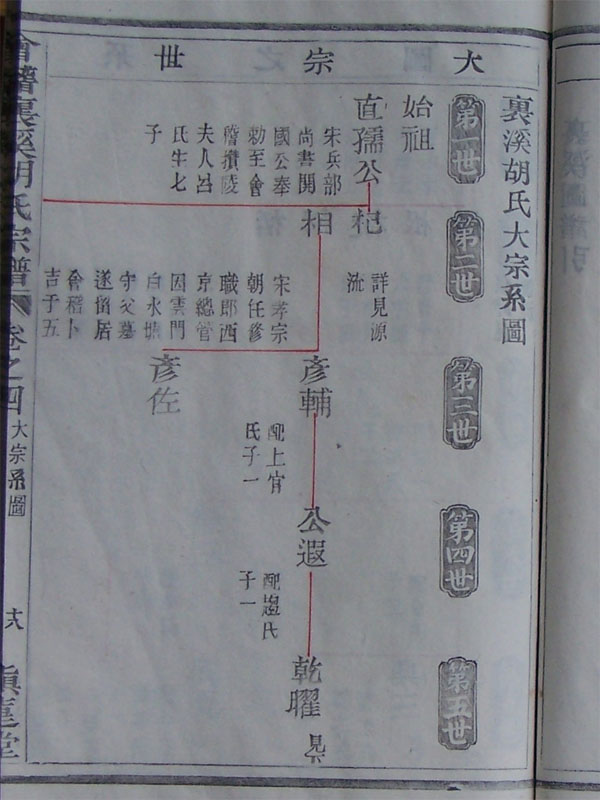 大宗世
裏溪胡氏大宗系圖
第一世
第二世
第三世
第四世
第五世
始祖
直孺公
宋兵部
尚書開
國公奉
勅至會
稽攢陵
夫人呂
氏生七
子
杞
詳見源
沠
相
宋孝宗
朝任修
職郎西
京總管
因雲門
白水塘
守父墓
遂留居
會稽卜
吉子五
彥輔
配上官
氏子一
彥佐
公遐
配趙氏
子一
乾曜
見下
會稽裏溪胡氏宗譜 卷之四 大宗系圖